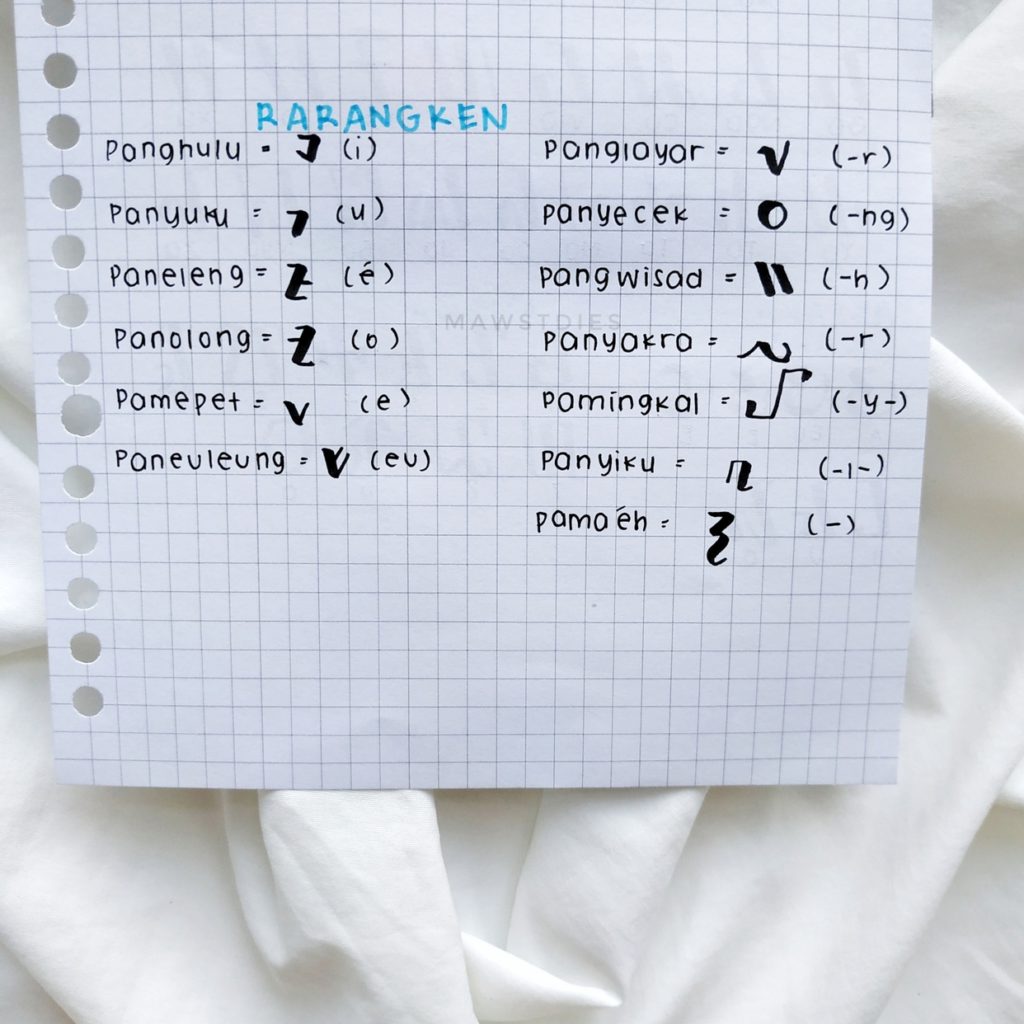 RARANGKEN
Panghulu = ᮤ (i)
Panyuku = ᮥ (u)
Paneleng = ᮦ (é)
Panolong = ᮧ (o)
Pamepet = ᮨ (e)
Paneuleung = ᮩ (eu)
Panglayar = ᮁ (-r)
Panyecek = ᮀ (-ng)
Pangwisad = ᮂ (-h)
Panyakra = ᮢ (-r)
Pamingkal = ᮡ (-y-)
Panyiku = ᮣ (-l-)
Pamaéh = ᮪ (-)
MAWSTDIES